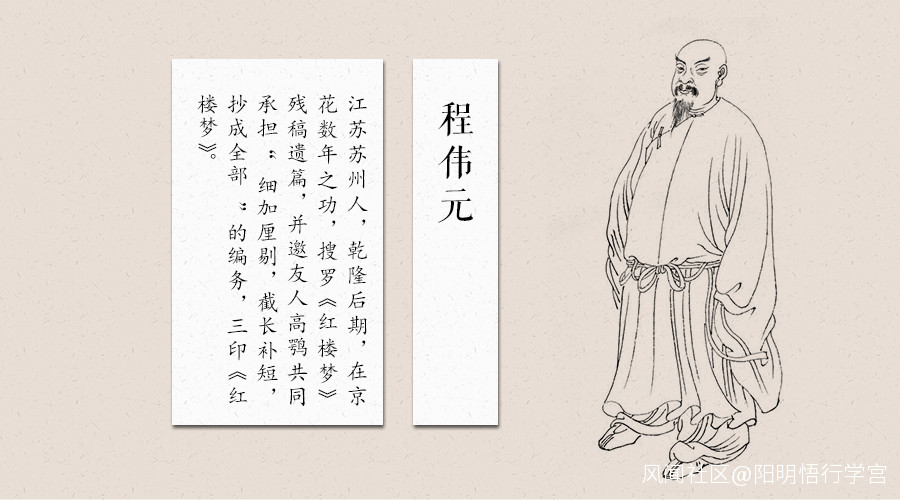 程伟元
江苏苏州人，乾隆后期，在京
花数年之功，搜罗《红楼梦》
残稿遗篇，并邀友人高鹗共同
承担“细加厘剔，截长补短，
抄成全部”的编务，三印《红
楼梦》。
风闻社区@阳明悟行学宫